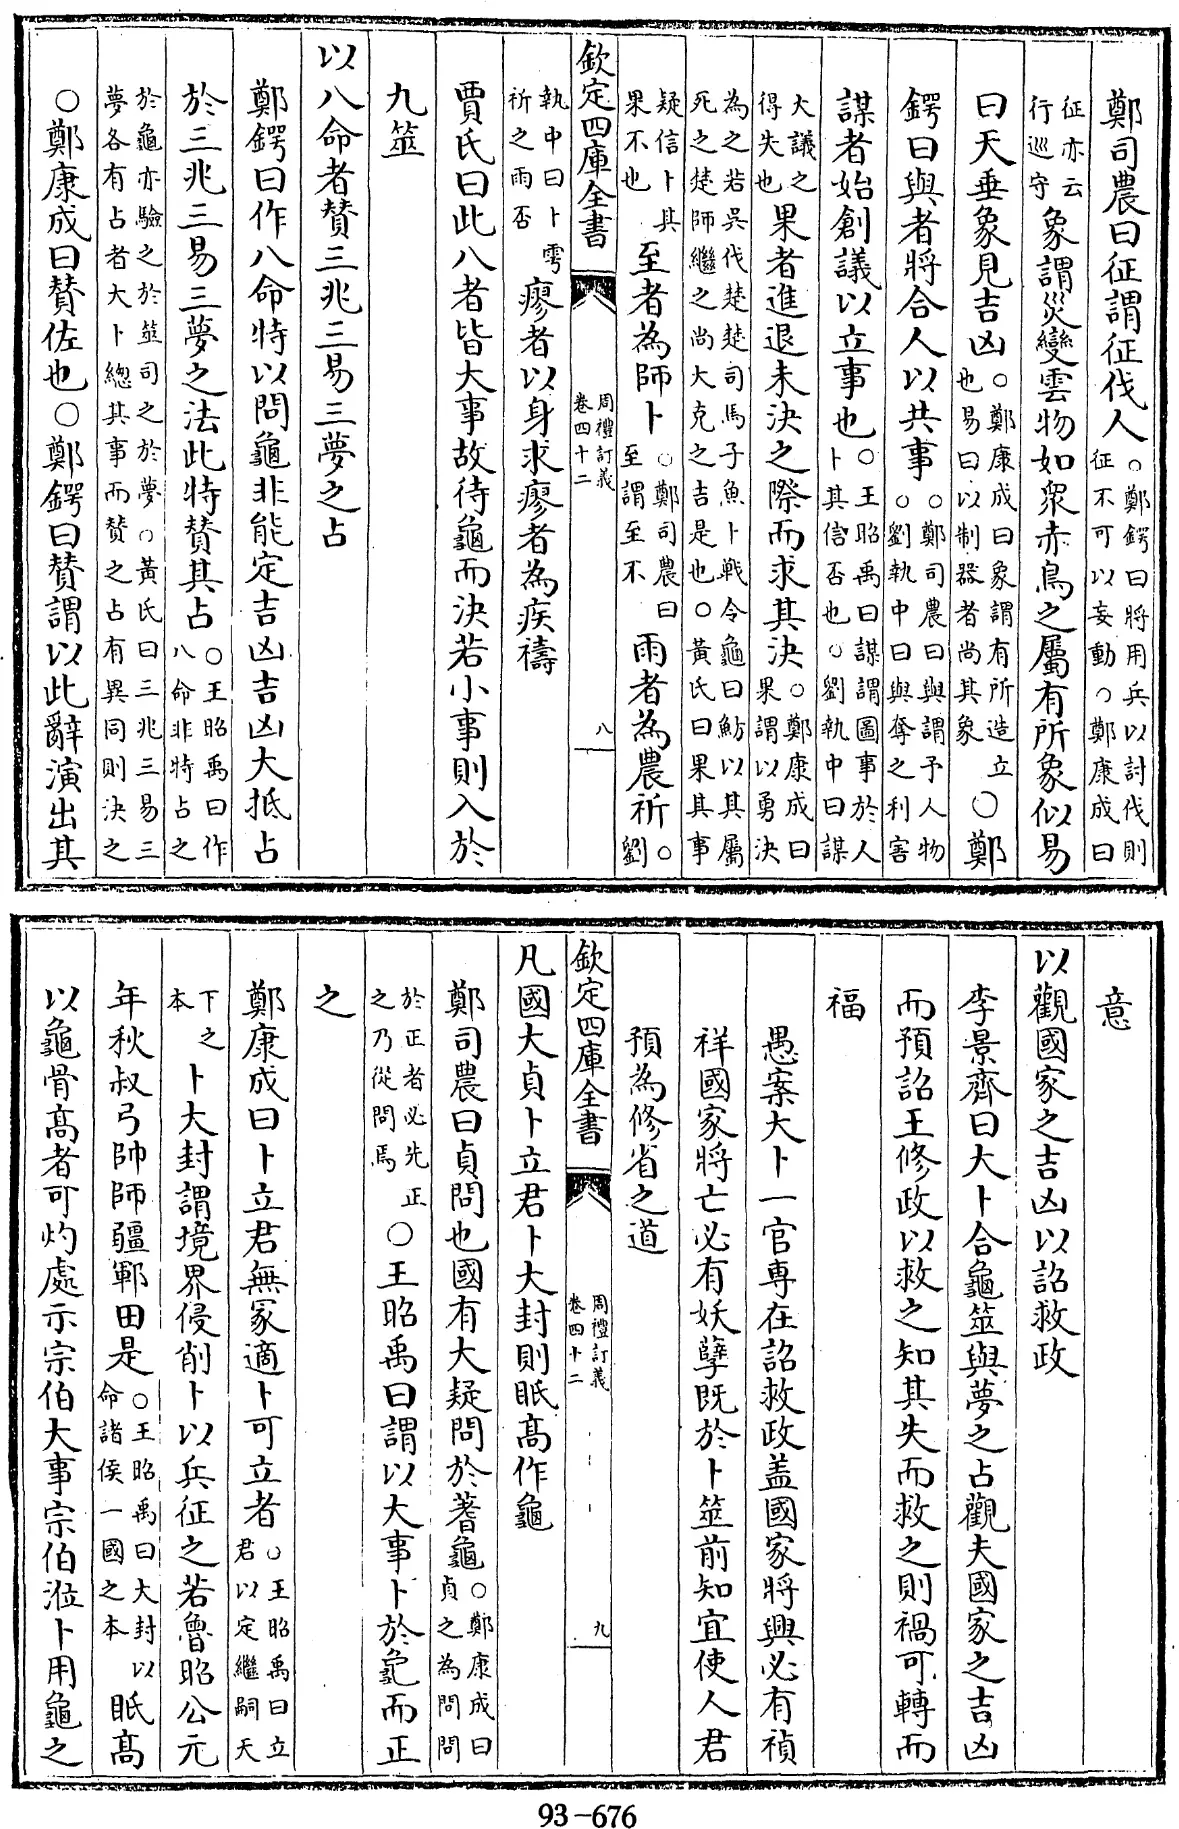 鄭司農曰征謂征伐人○鄭鍔曰將用兵以討伐則征不可以妄動○鄭康成曰
征亦云行巡守象謂災變雲物如衆赤鳥之屬有所象似易
曰天垂象見吉凶○鄭康成曰象謂有所造立也易曰以制器者尚其象○鄭
鍔曰與者將合人以共事○鄭司農曰與謂予人物○劉執中曰與奪之利害
謀者始創議以立事也○王昭禹曰謀謂圖事於人卜其信否也○劉執中曰謀
大議之得失也果者進退未決之際而求其決○鄭康成曰果謂以勇決
為之若吳伐楚楚司馬子魚卜戰令龜曰鮒以其屬死之楚師繼之尚大克之吉是也○黃氏曰果其事
疑信卜其果不也至者為師卜○鄭司農曰至謂至不雨者為農祈○劉
欽定四庫全書 周禮訂義卷四十二 八
執中曰卜雩祈之雨否瘳者以身求瘳者為疾禱
賈氏曰此八者皆大事故待龜而決若小事則入於
九簭
以八命者贊三兆三易三夢之占
鄭鍔曰作八命特以問龜非能定吉凶吉凶大抵占
於三兆三易三夢之法此特贊其占○王昭禹曰作八命非特占之
於龜亦驗之於簭司之於夢○黃氏曰三兆三易三夢各有占者大卜總其事而贊之占有異同則決之
○鄭康成曰贊佐也○鄭鍔曰贊謂以此辭演出其
意
以觀國家之吉凶以詔救政
李景齊曰大卜合龜簭與夢之占觀夫國家之吉凶
而預詔王修政以救之知其失而救之則禍可轉而
福
愚案大卜一官専在詔救政盖國家將興必有禎
祥國家將亡必有妖孽既於卜簭前知宜使人君
預為修省之道
欽定四庫全書 周禮訂義卷四十二 九
凡國大貞卜立君卜大封則眡高作龜
鄭司農曰貞問也國有大疑問於蓍龜○鄭康成曰貞之為問問
於正者必先正之乃從問焉○王昭禹曰謂以大事卜於龜而正
之
鄭康成曰卜立君無冢適卜可立者○王昭禹曰立君以定繼嗣天
下之本卜大封謂境界侵削卜以兵征之若魯昭公元
年秋叔弓帥師疆鄆田是○王昭禹曰大封以命諸侯一國之本眡高
以龜骨高者可灼處示宗伯大事宗伯涖卜用龜之
93-676